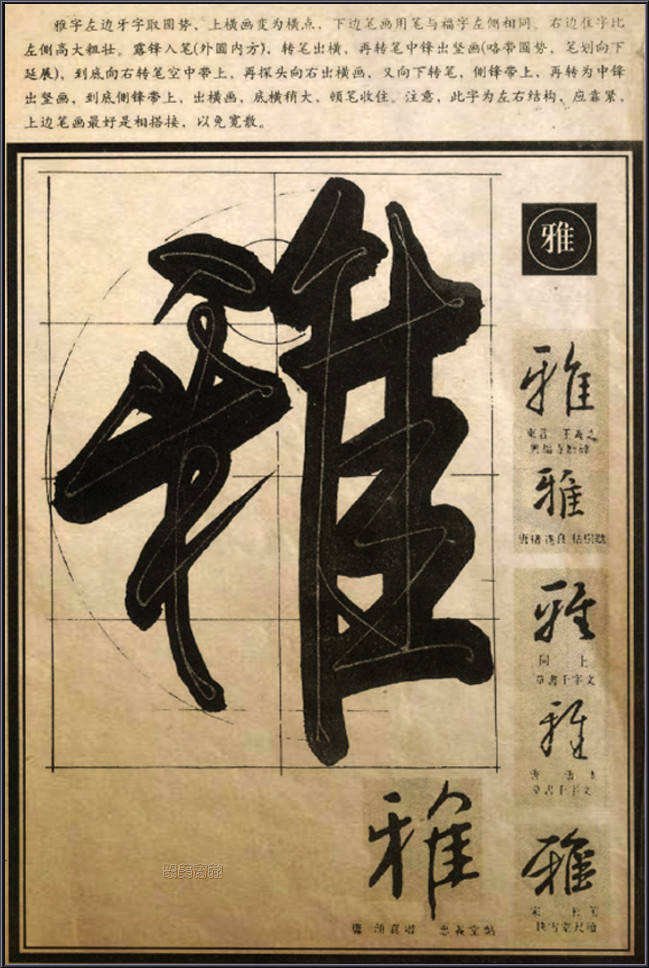 雅字左边牙字取圆势、上横画变为横点，下边笔画用笔与福字左侧相同。右边住字比
左侧高大粗壮。露锋入笔(外圆内方)，转笔出横，再转笔中锋出竖画(略带圆势，笔划向下
延展)，到底向右转笔空中带上，再探头向右出横画，又向下转笔，侧锋带上，再转为中锋
出竖画，到底侧锋带上，出横画，底横稍大，顿笔收住。注意，此字为左右结构，应靠紧，
上边笔画最好是相搭接，以免宽散。
雅
雅
雅
東晋 王羲之
興福寺断碑
雅
唐褚遂良 枯樹賦
雅
同 上
草書千字文
雅
草書千字文
雅
唐 顔真卿 忠義堂帖
雅